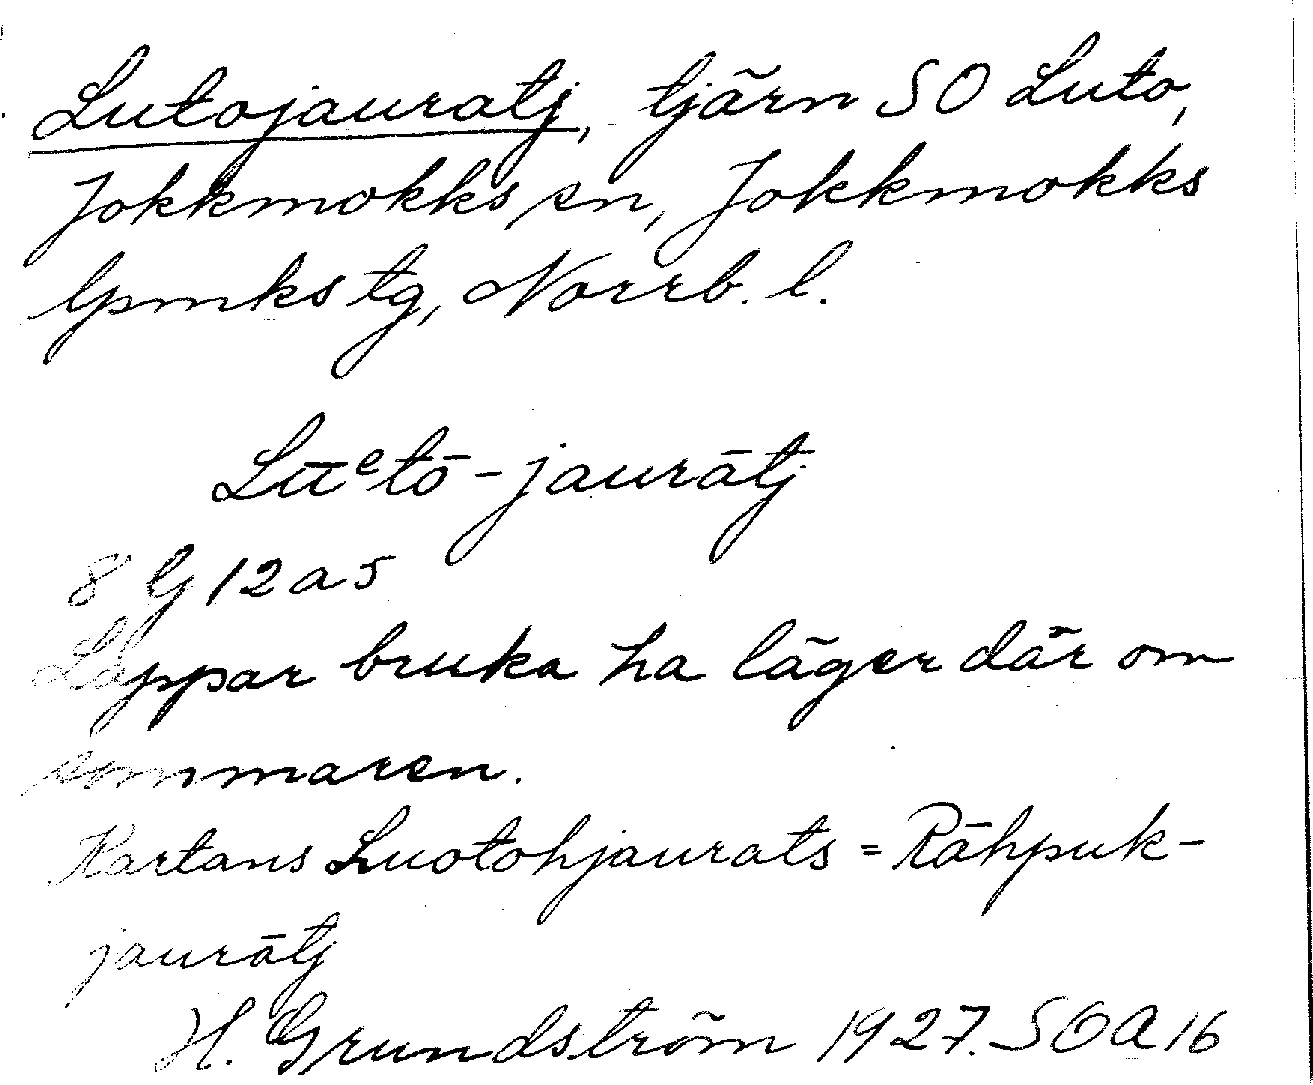 Lutojauratj, tjärn SO Luto,
Jokkmokks sn, Jokkmokks
lpmks tg, Norrb. l.
Lūᵉtō-jaurātj
8 G 12 a 5
Lappar bruka ha läger där om
sommaren.
Kartans Luotohjaurats = Rāhpuk-
jaurātj
H. Grundström 1927. SOA 16